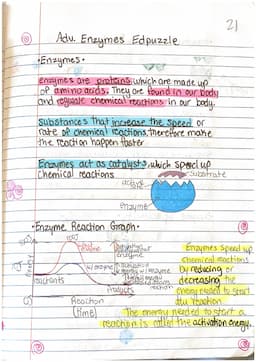 21
Adv. Enzymes Edpuzzle
•Enzymes•
enzymes are proteins which are made up
of amino acids. They are found in our body
and regulate chemical reactions in our body.
Substances that increase the speed or
rate of chemical reactions, therefore make
the reaction happen faster
Enzymes act as catalysts, which speed up
chemical reactions
substrate
active
site
enzyme
•Enzyme Reaction Graph•
Enzymes speed up
chemical reactions
by reducing or
decreasing the
energy needed to start
the reaction
w/enzyme
Energy
reactants
products
Reaction
(time)
The energy needed to start a
reaction is called the activation energy.